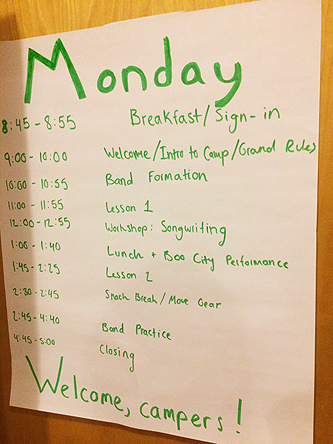 Monday
8:45 - 8:55 Breakfast/Sign-in
9:00 - 10:00 Welcome/Intro to Camp/Ground Rules
10:00 - 10:55 Band Formation
11:00 - 11:55 Lesson 1
12:00 - 12:55 Workshop: Songwriting
1:00 - 1:40 Lunch + Boo City Performance
1:45 - 2:25 Lesson 2
2:30 - 2:45 Snack Break/Move Gear
2:45 - 4:40 Band Practice
4:45 - 5:00 Closing
Welcome, campers!